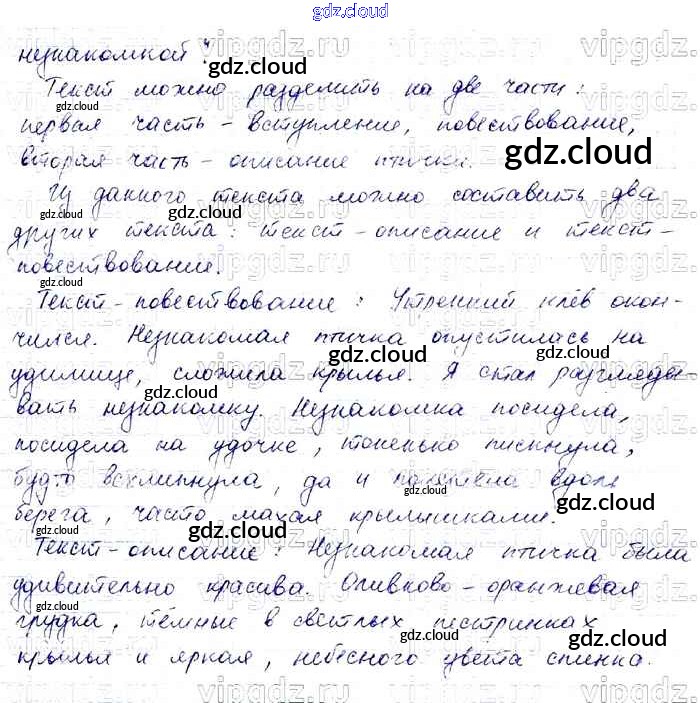 gdz.cloud
незнакомкой".
Текст можно разделить на две части:
первая часть – вступление, повествование,
вторая часть – описание птички.
Из данного текста можно составить два
других текста: текст-описание и текст-
повествование.
Текст-повествование: Утренний клёв окон-
чился. Незнакомая птичка опустилась на
удилище, сложила крылья. Я стал разгляды-
вать незнакомку. Незнакомка посидела,
посидела на удочке, тоненько пискнула,
будто всхлипнула, да и полетела вдоль
берега, часто махая крылышками.
Текст-описание: Незнакомая птичка была
удивительно красива. Оливково-оранжевая
грудка, тёмные в светлых пестринках
крылья и яркая, небесного цвета спинка.